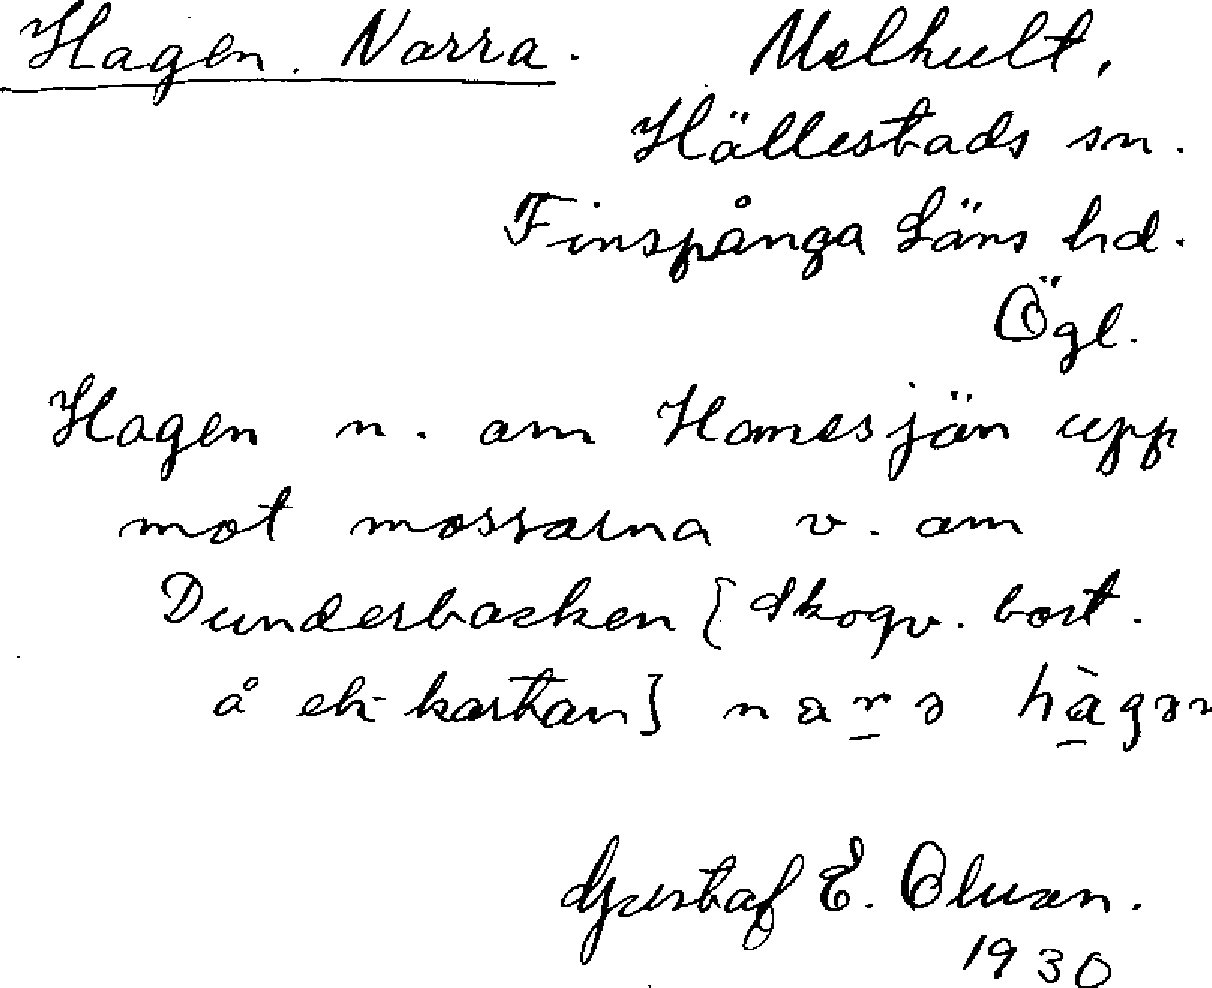 Hagen. Norra. Melhult,
Hällestads sn.
Finspånga Läns hd.
Ögl.
Hagen n. om Hornessjön upp
mot mossarna v. om
Dunderbacken [Skogv. bort.
å ek-kartan] nara hàgən
Gustaf E. Oluson.
1930